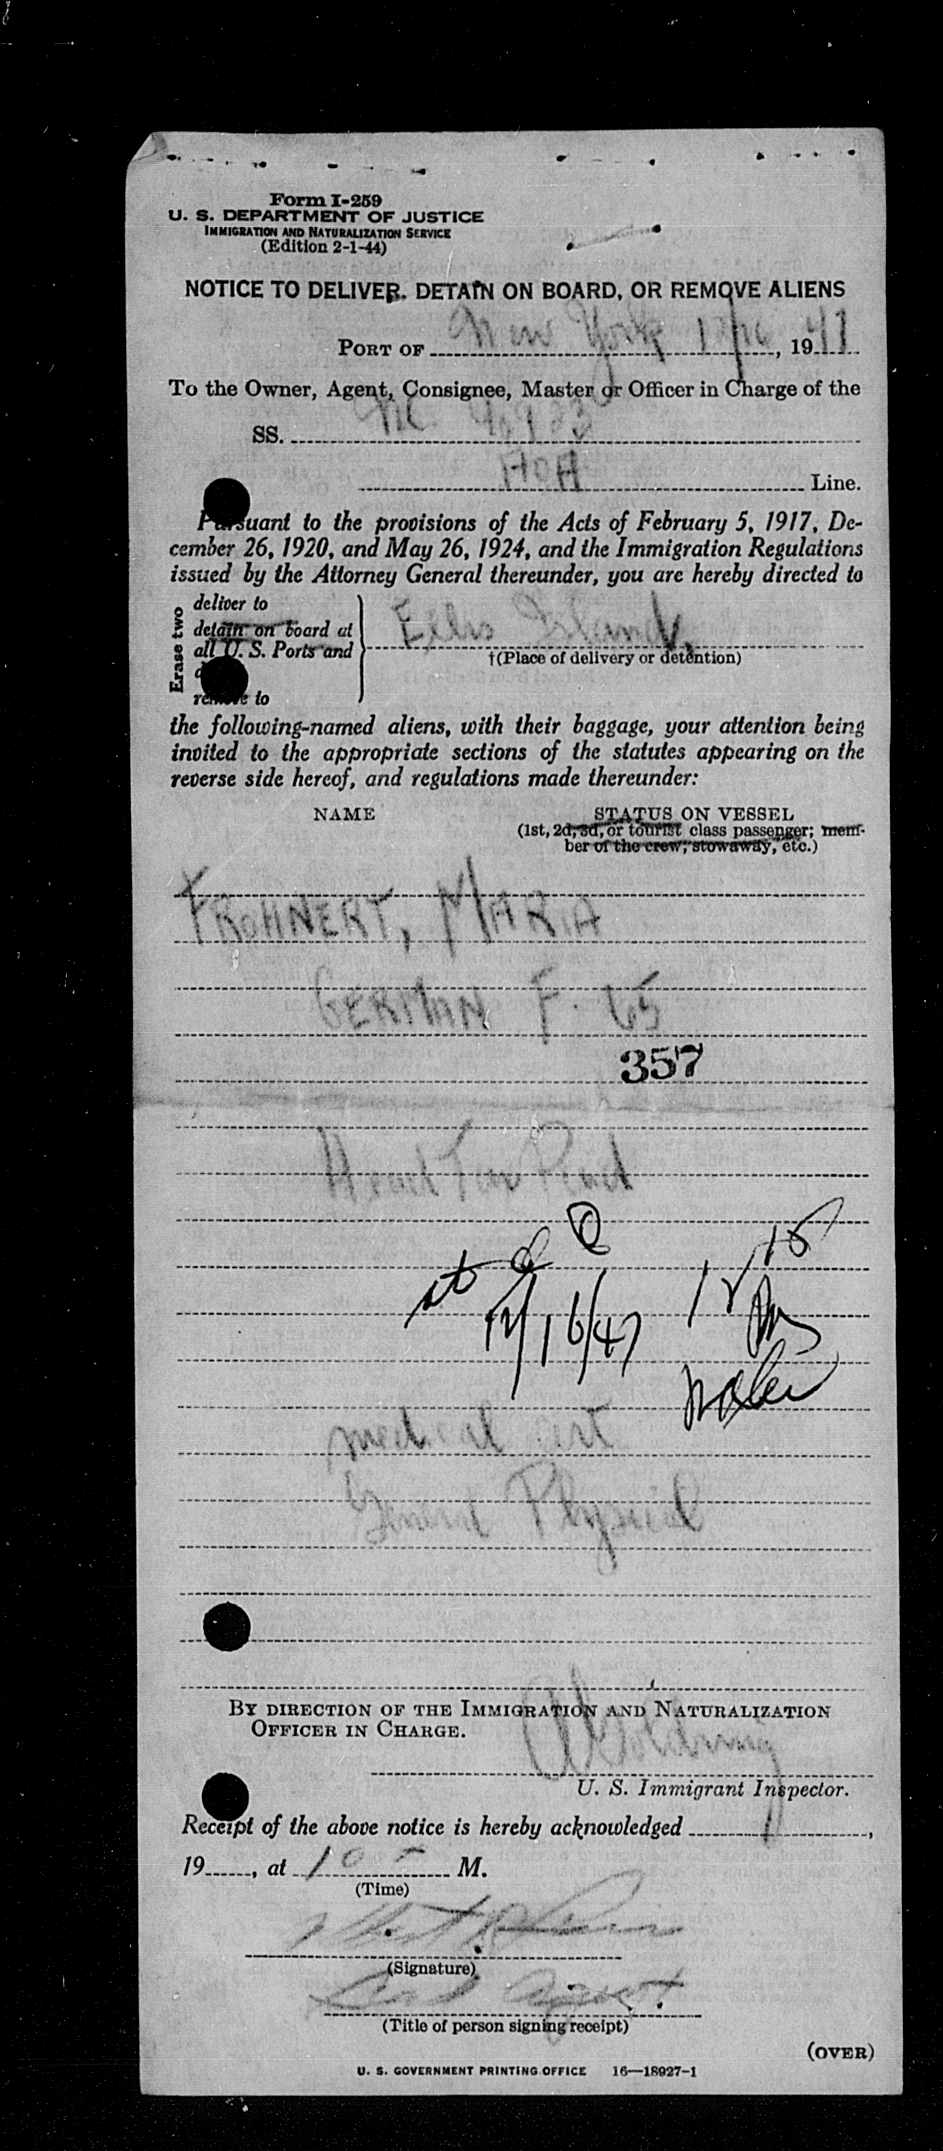 Form I-259
U. S. DEPARTMENT OF JUSTICE
IMMIGRATION AND NATURALIZATION SERVICE
(Edition 2-1-44)
NOTICE TO DELIVER, DETAIN ON BOARD, OR REMOVE ALIENS
PORT OF New York 12/16, 1947
To the Owner, Agent, Consignee, Master or Officer in Charge of the
SS. NC 90933
AOA Line.
Pursuant to the provisions of the Acts of February 5, 1917, De-
cember 26, 1920, and May 26, 1924, and the Immigration Regulations
issued by the Attorney General thereunder, you are hereby directed to
Erase two
deliver to
detain on board at
all U. S. Ports and
remove to
Ellis Island,
†(Place of delivery or detention)
the following-named aliens, with their baggage, your attention being
invited to the appropriate sections of the statutes appearing on the
reverse side hereof, and regulations made thereunder:
NAME STATUS ON VESSEL
(1st, 2d, 3d, or tourist class passenger; mem-
ber of the crew, stowaway, etc.)
FROHNERT, MARIA
GERMAN F. 65
357
Head Tax Paid
12/16/47
medical cert
General Physical
BY DIRECTION OF THE IMMIGRATION AND NATURALIZATION
OFFICER IN CHARGE.
U. S. Immigrant Inspector.
Receipt of the above notice is hereby acknowledged ,
19 , at 10 M.
(Time)
(Signature)
Agent
(Title of person signing receipt)
(OVER)
U. S. GOVERNMENT PRINTING OFFICE 16—18927-1